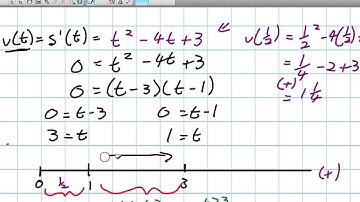 v(t) = s'(t) = t² - 4t + 3
0 = t² - 4t + 3
0 = (t-3)(t-1)
0 = t-3 0 = t-1
3 = t 1 = t
v(½) = ½² - 4(½)
= ¼ - 2 + 3
(+)
= 1 ¼
0 ½ 1 3 (+)